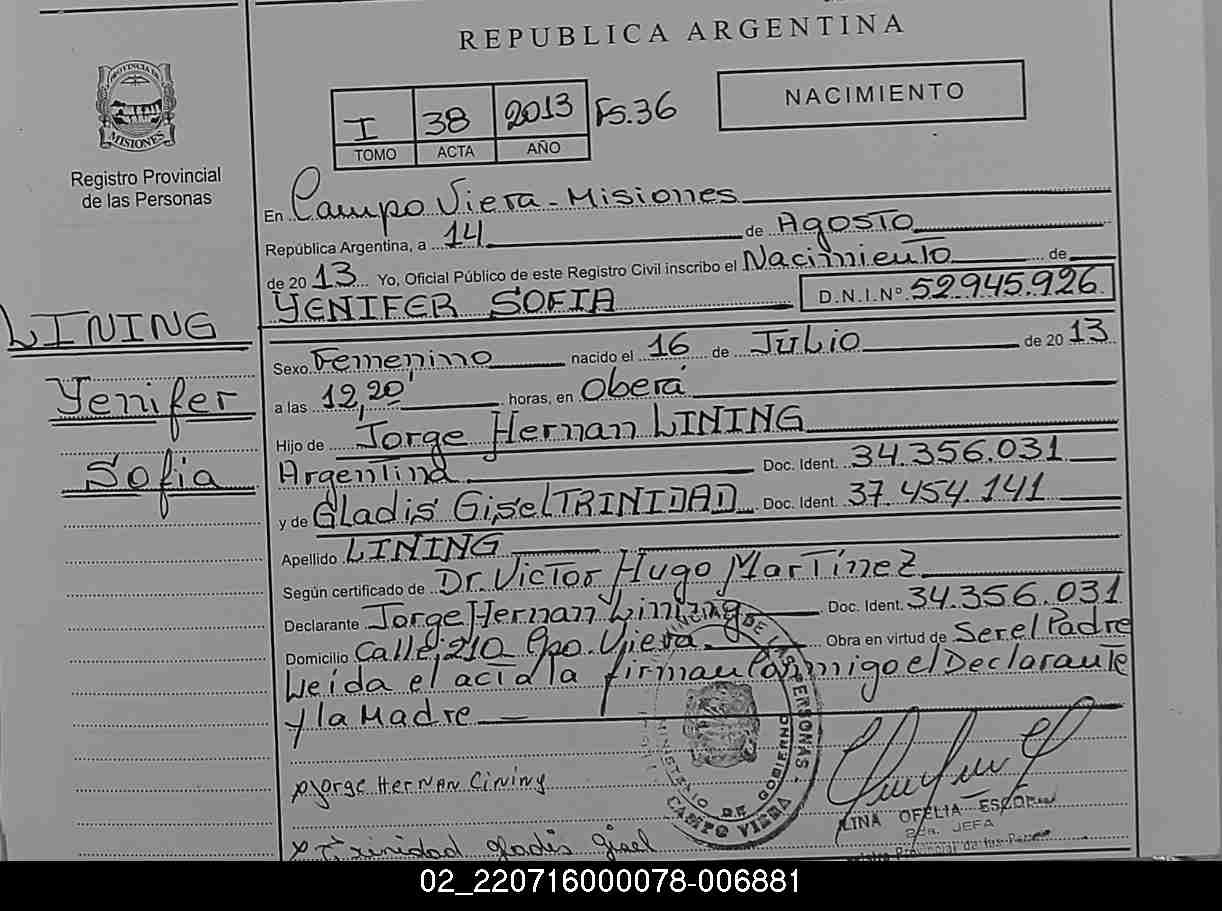 REPUBLICA ARGENTINA
PROVINCIA DE
MISIONES
Registro Provincial
de las Personas
I 38 2013 Fs.36
TOMO ACTA AÑO
NACIMIENTO
En Campo Viera - Misiones
República Argentina, a 14 de Agosto
de 2013 Yo, Oficial Público de este Registro Civil inscribo el Nacimiento de
YENIFER SOFIA D.N.I.Nº 52.945.926
LINING
Yenifer
Sofia
Sexo Femenino nacido el 16 de Julio de 2013
a las 12,20' horas, en Oberá
Hijo de Jorge Hernan LINING
Argentina Doc. Ident. 34.356.031
y de Gladis Gisel TRINIDAD Doc. Ident. 37.454.141
Apellido LINING
Según certificado de Dr. Victor Hugo Martínez
Declarante Jorge Hernan Lining Doc. Ident. 34.356.031
Domicilio Calle 210 Cpo. Viera. Obra en virtud de Ser el Padre
Leida el acta la firman Conmigo el Declarante
y la Madre
Jorge HerNAN Lining
MINISTERIO DE GOBIERNO
CAMPO VIERA
PERSONAS
LINA OFELIA
JEFA
Trinidad gladis gisel
02_220716000078-006881